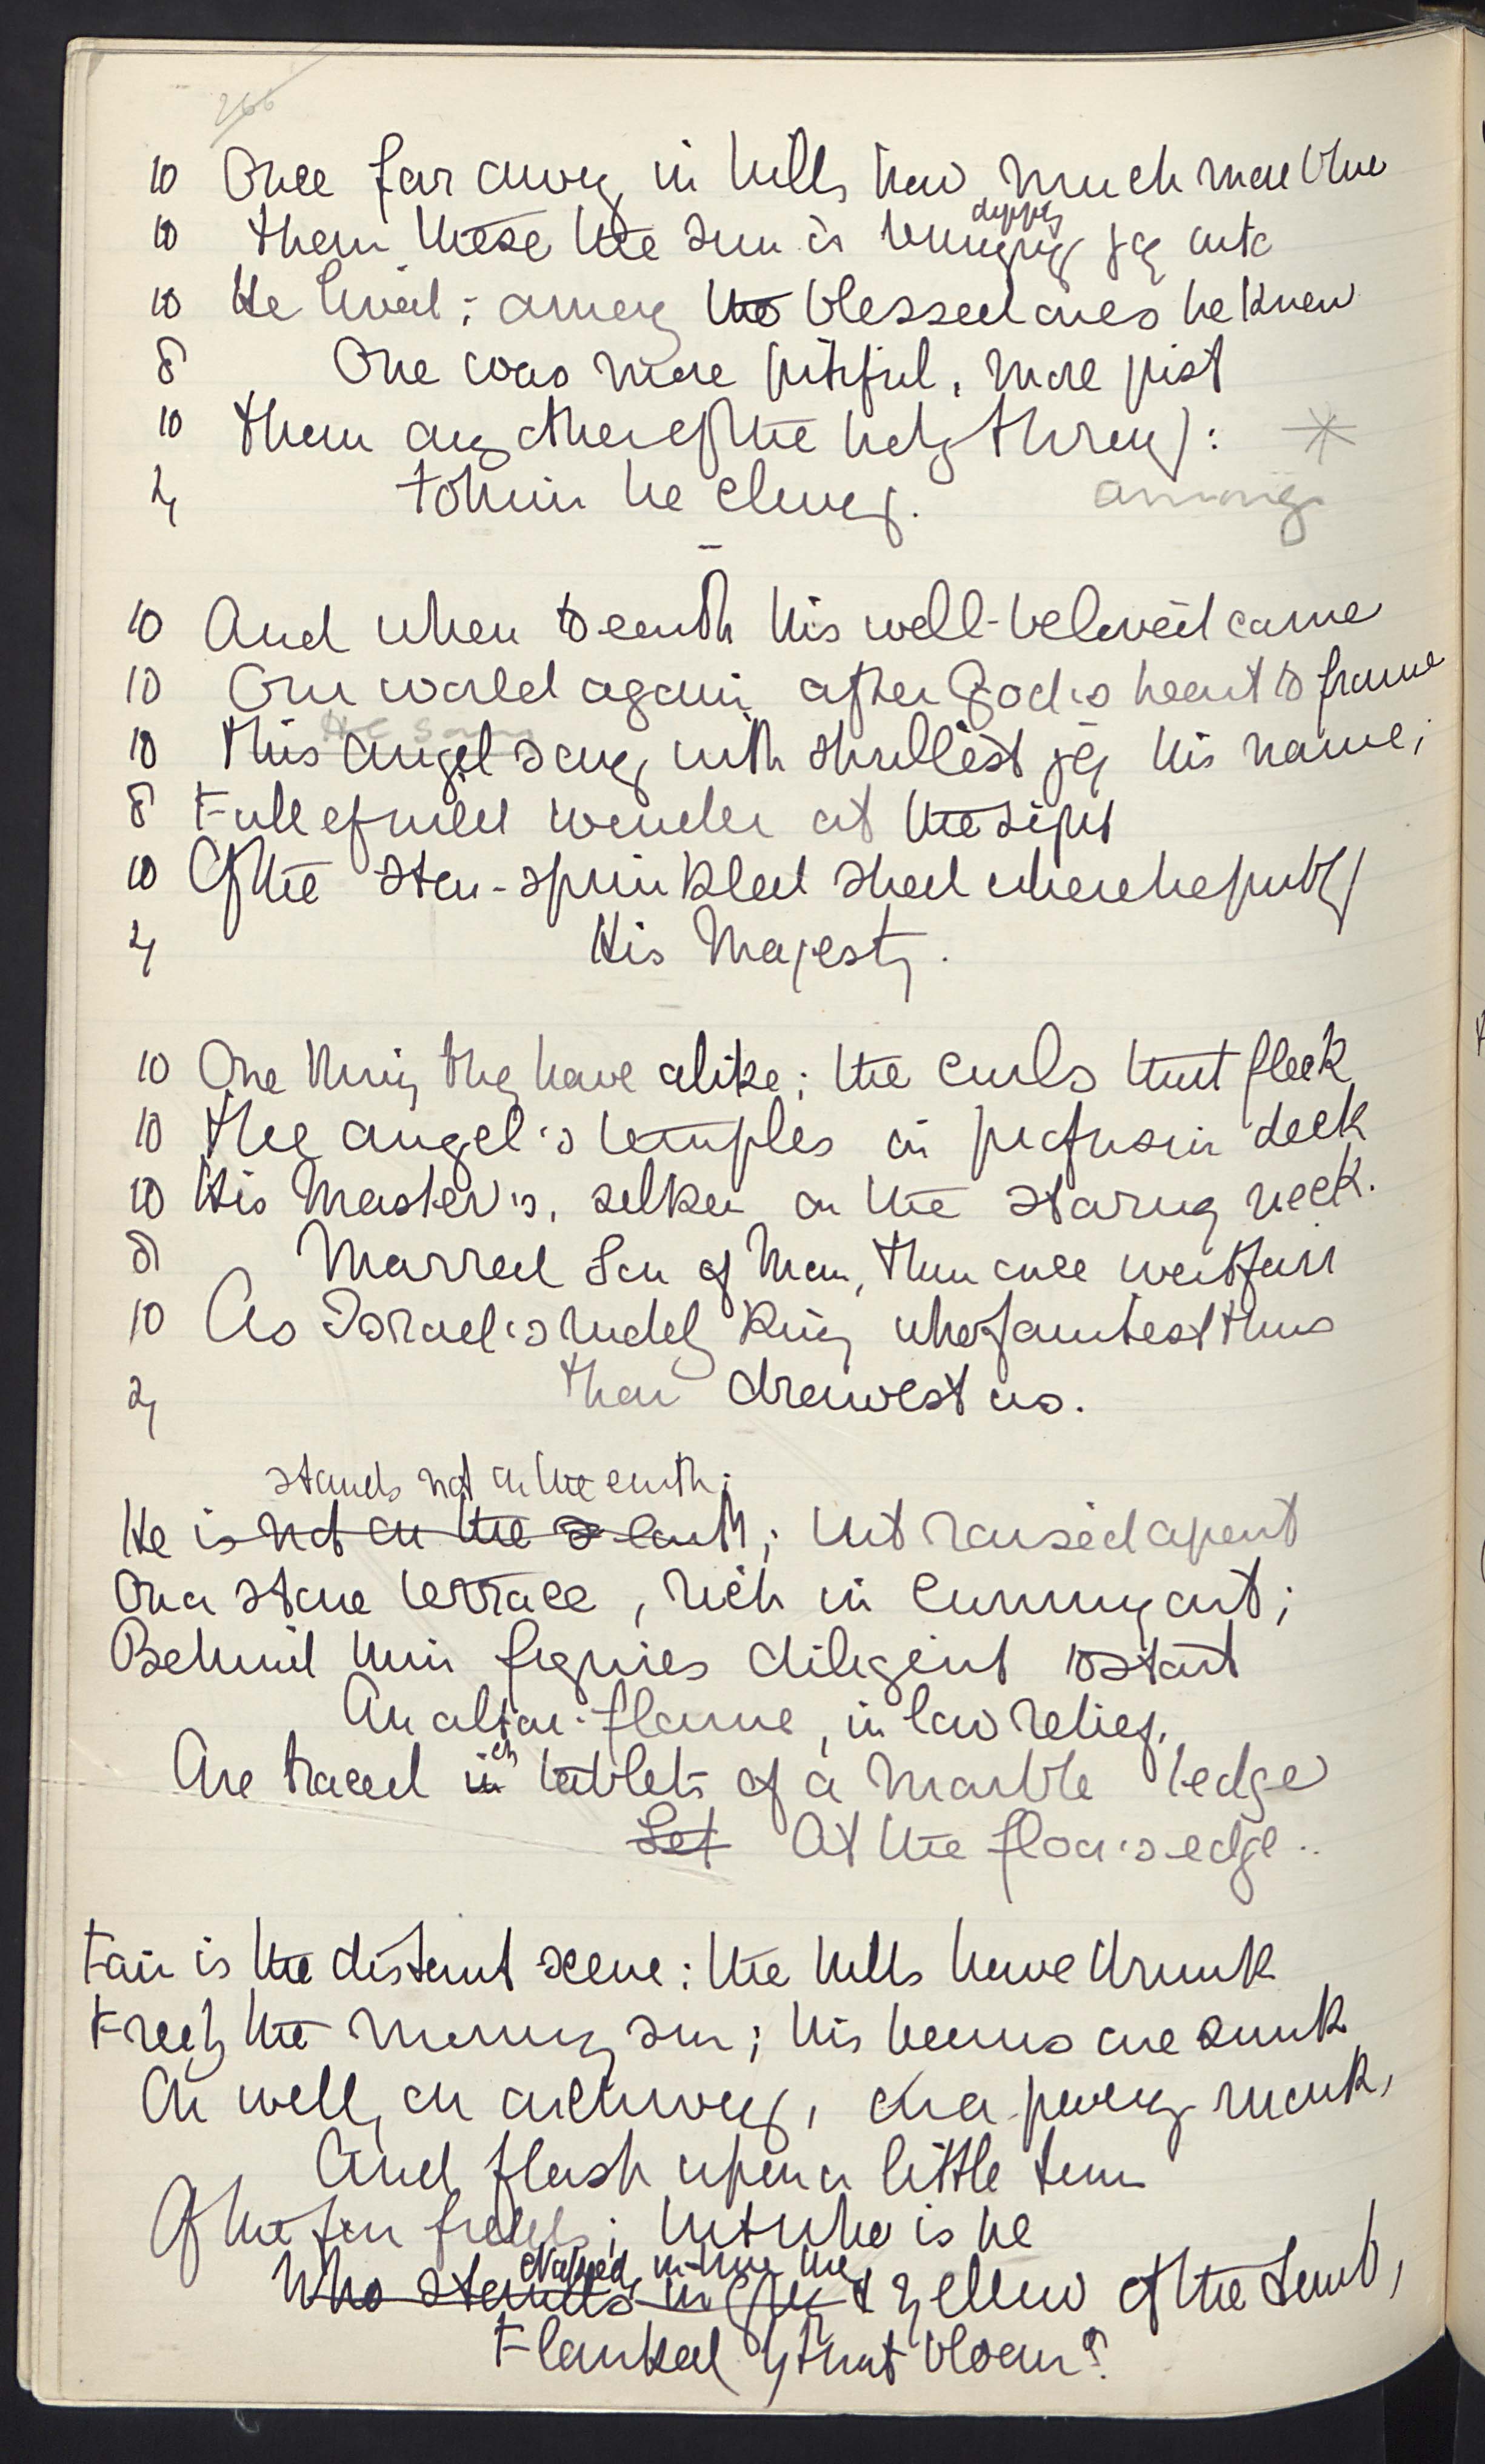 266
10 Once far away in hills how much more blue
10 Than these the sun is bringing joy unto
dipping
10 He lived; among the blessed ones he knew
8 One was more pitiful, more just
10 Than any other of the holy throng: *
4 To him he clung. among
10 And when to earth his well-beloved came
10 Our world again after God's heart to frame
He sang
10 This angel sang with shrillest joy his name;
8 Full of mild wonder at the sight
10 Of the star-sprinkled shed where he put by
4 His Majesty.
10 One thing they have alike; the curls that fleck
10 The angel's temples in profusion deck
10 His Master's, silken on the staring neck.
8 Marred Son of Man, thou once wert fair
10 As Israel's ruddy King who faintest thus
4 Thou drawest us.
stands not on the earth;
He is not on the earth; but raised apart
On a stone terrace, rich in cunning art;
Behind him figures diligent to start
An altar-flame, in low relief,
Are traced in on tablets of a marble ledge
Set At the floor's edge.
Fair is the distant scene: the hills have drunk
Freely the morning sun; his beams are sunk
On well, on archway, on a monk,
And flash upon a little
Of the far fields; but who is he
Naked, the
Who stands in & yellow of the tomb,
Flanked by that bloom?